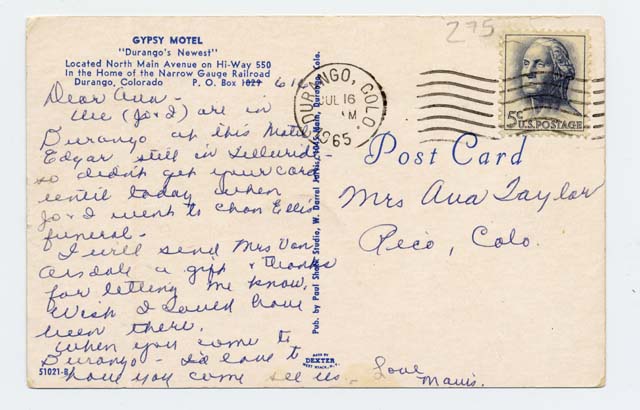 GYPSY MOTEL
"Durango's Newest"
Located North Main Avenue on Hi-Way 550
In the Home of the Narrow Gauge Railroad
Durango, Colorado P. O. Box 1029 61
Dear Ava -
We (Jo & I) are in
Durango at this Motel
Edgar still in Telluride -
so didn't get your card
until today when
Jo & I went to Ellis
funeral -
I will send Mrs Van
Arsdale a gift & thanks
for letting me know.
Wish I could have
been there.
When you come to
Durango - I'd love to
have you come see us -
Love
Mavis.
51021-B
Pub. by Paul Shank Studio, W. Darrel Jarvis, Main, Durango, Colo.
MADE BY
DEXTER
WEST NYACK, N.Y.
275
DURANGO, COLO.
JUL 16
M
1965
5¢
U.S. POSTAGE
Post Card
Mrs Ava Taylor
Rico, Colo.